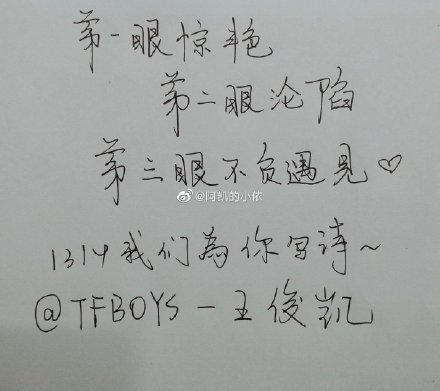 第一眼惊艳
第二眼沦陷
第三眼不负遇见♡
@阿凯的小依
1314我们為你写诗~
@TFBOYS-王俊凯